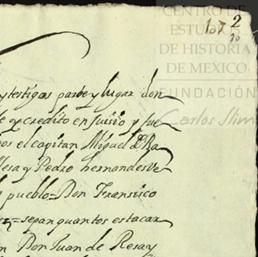 CENTRO DE
ESTUDIOS
DE HISTORIA
DE MEXICO
FUNDACIÓN
Carlos Slim
107 2
10
ytestigos parte y lugar don
e y credito en Juisio y fue
os el capitan Miguel de
Mesa y Pedro hernandes Ve
pueblo = Don Fransisco
= sepan quantos esta car
n Don Juan de Rosa y